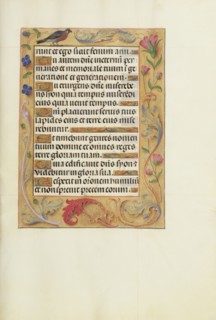 runt et ego sicut fenum arui.
u autem dñe ineternũ per
manes et memoriale tuum ĩ ge
neratione et generationem.
u exurgens dñe misereber
sion quia tempus miserẽdi
eius quia uenit tempus.
m placuerunt seruis tuis
lapides eius et terre eius mise
rebuntur.
t timebunt gentes nomen
tuum domine et omnes reges
terre gloriam tuam.
ia edificauit dñs syon et
videbitur in gloria sua.
espexit in orõnem humiliũ
et non spreuit precem eorum.